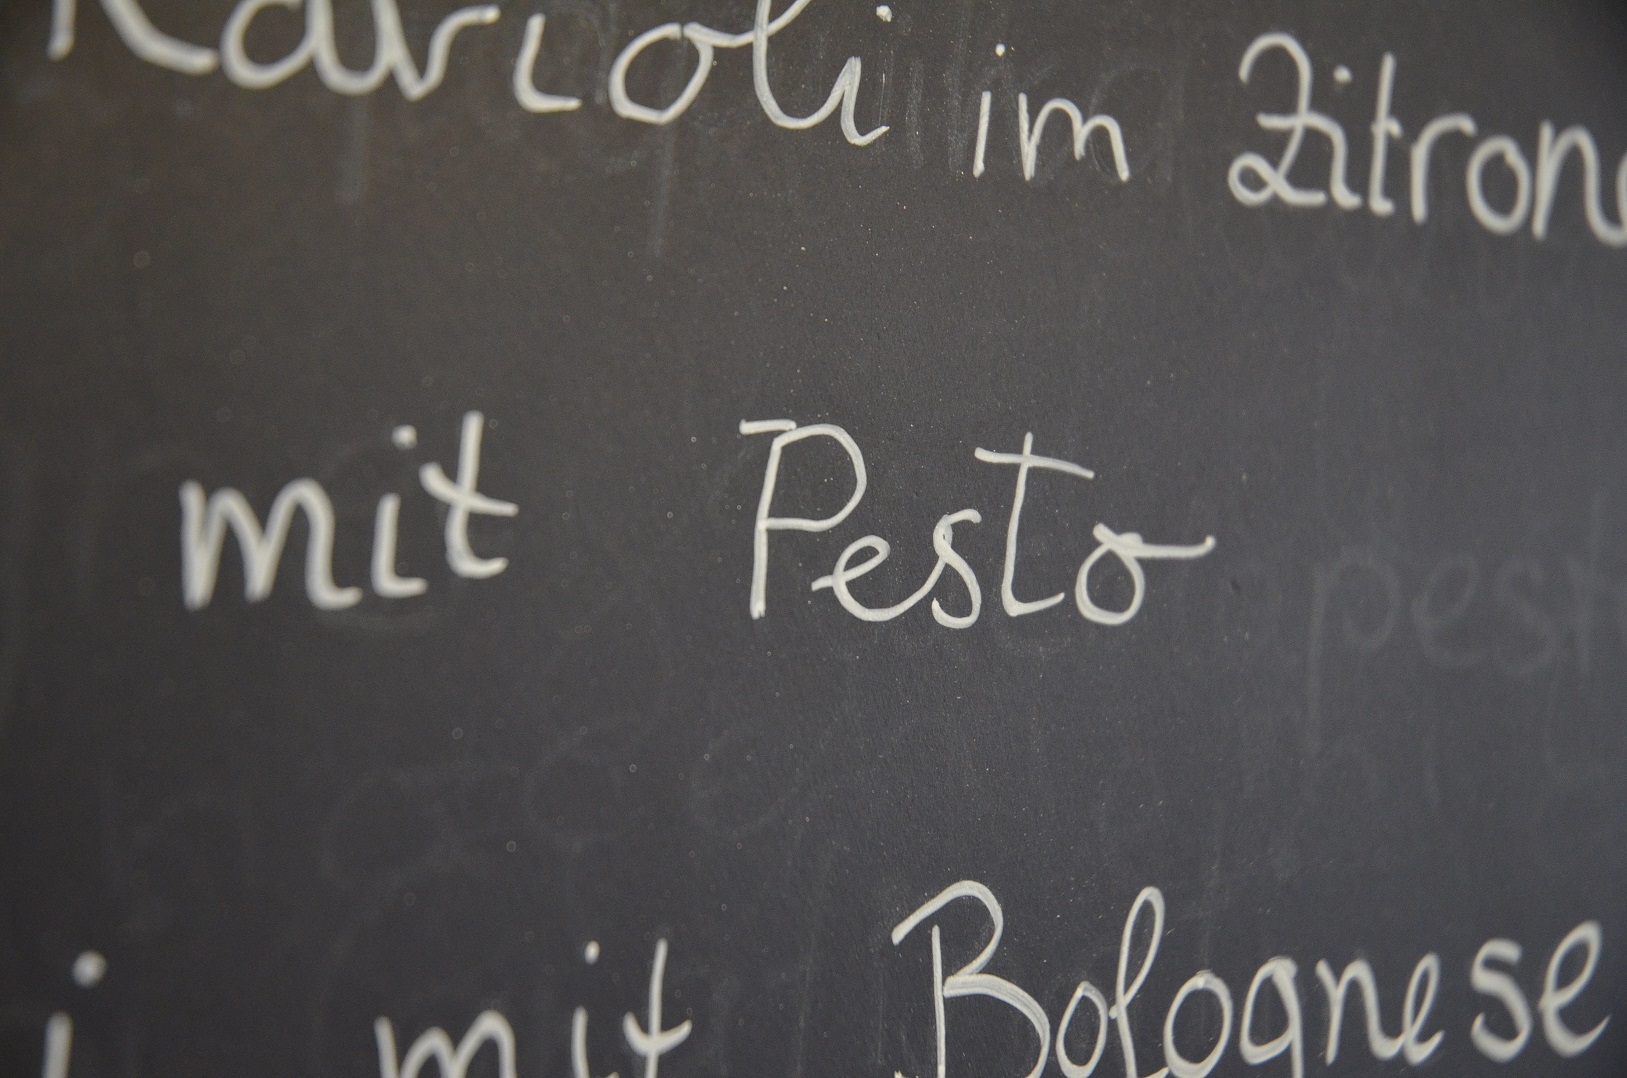 Ravioli im Zitrone
mit Pesto
i mit Bolognese